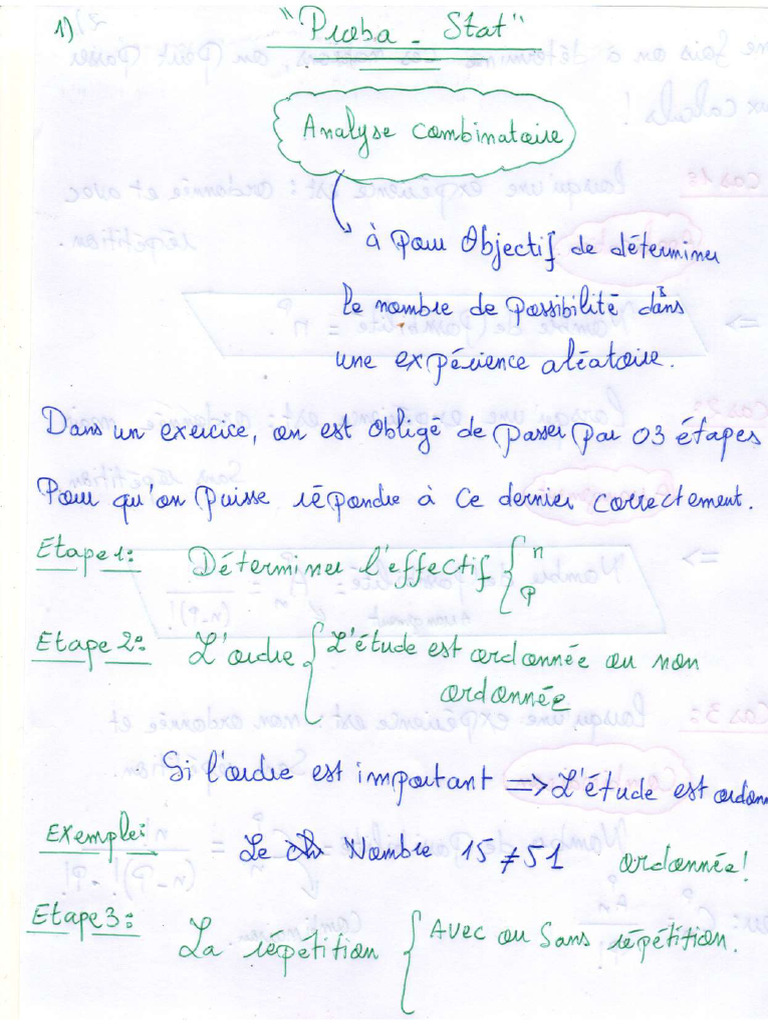 1)
"Proba - Stat"
Analyse Combinatoire
à pour Objectif de déterminer
le nombre de possibilités dans
une expérience aléatoire.
Dans un exercice, on est obligé de passer par 03 étapes
Pour qu'on puisse répondre à ce dernier correctement.
Etape1: Déterminer l'effectif { n
P
Etape 2: L'ordre { L'étude est ordonnée ou non
ordonnée
Si l'ordre est important => L'étude est ordonn
Exemple: Le Nombre 15 ≠ 51 ordonnée!
Etape3: La répétition { Avec ou Sans répétition.